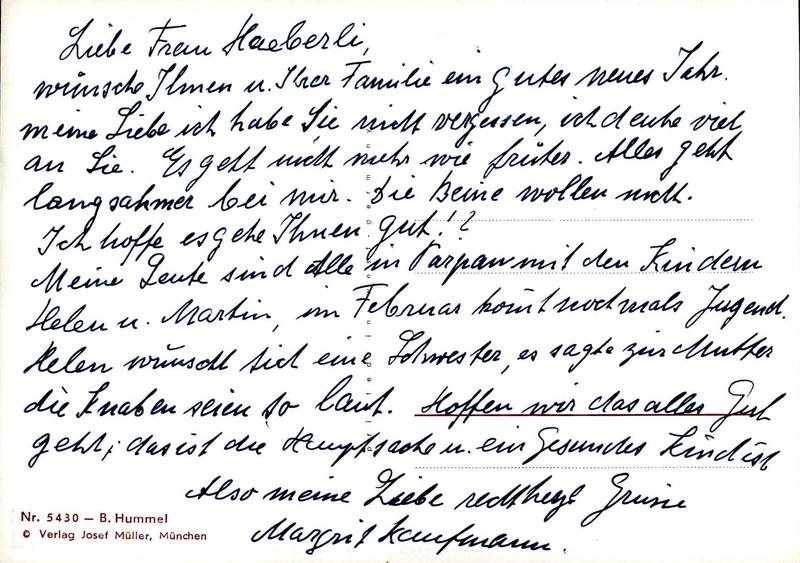 Liebe Frau Haeberli,
wünsche Ihnen u. Ihrer Familie ein gutes neues Jahr.
meine Liebe ich habe Sie nicht vergessen, ich denke viel
an Sie. Es geht nicht mehr wie früher. Alles geht
langsahmer bei mir. Die Beine wollen nicht.
Ich hoffe es gehe Ihnen gut!?
Meine Leute sind Alle in Parpan mit den Kindern
Helen u. Martin, im Februar komt nochmals Jugend.
Helen wünscht sich eine Schwester, es sagte zur Mutter
die Knaben seien so laut. Hoffen wir das alles Gut
geht, das ist die Hauptsache u. ein Gesundes Kind ist
Also meine Liebe recht herzl Grüsse
Margrit Kaufmann.
Nr. 5430 — B. Hummel
© Verlag Josef Müller, München